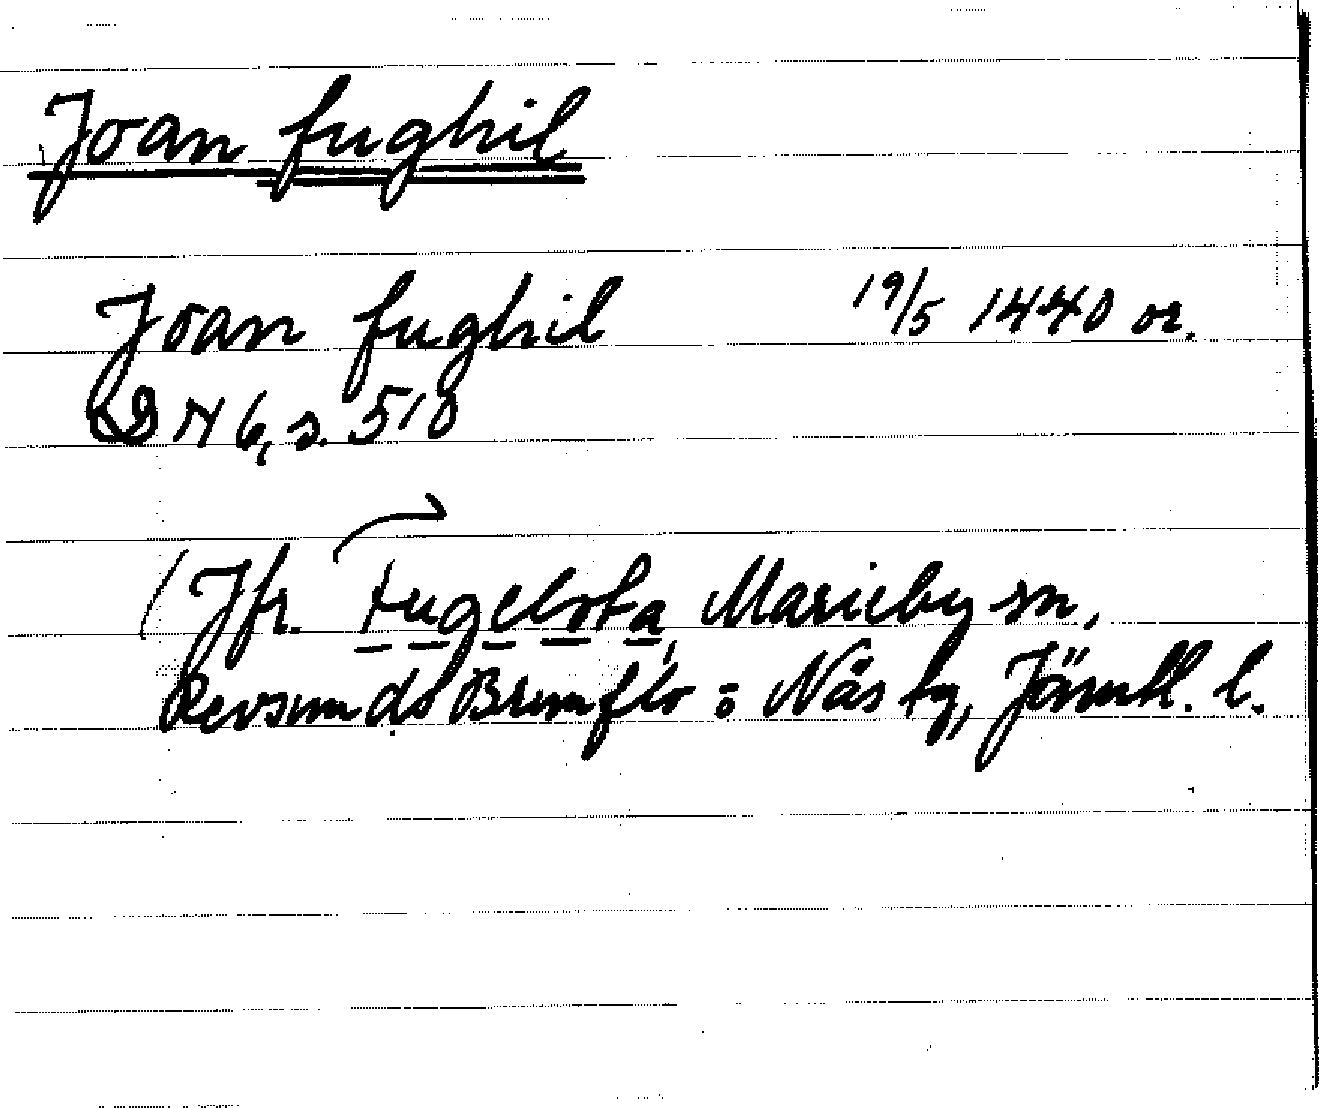 Joan fughil
Joan fughil 19/5 1440 or.
SD N 6, s. 518
(Jfr. Fugelsta, Marieby sn,
Revsunds Brunflo : Näs tg, Jämtl. l.